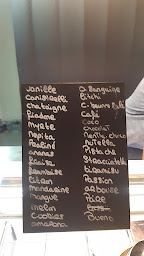 vanille
Canistrelli
chataigne
fiadone
Myrte
nepita
Praliné
ananas
fraise
framboise
Citron
mandarine
mangue
melon
Cookies
amarena
o. Sanguine
Litchi
C. beurre salé
Café
Coco
chocolat
Menthe. choco
Nutella
Pistache
Stracciatella
tiramisu
Passion
arbouse
Poire
Bueno